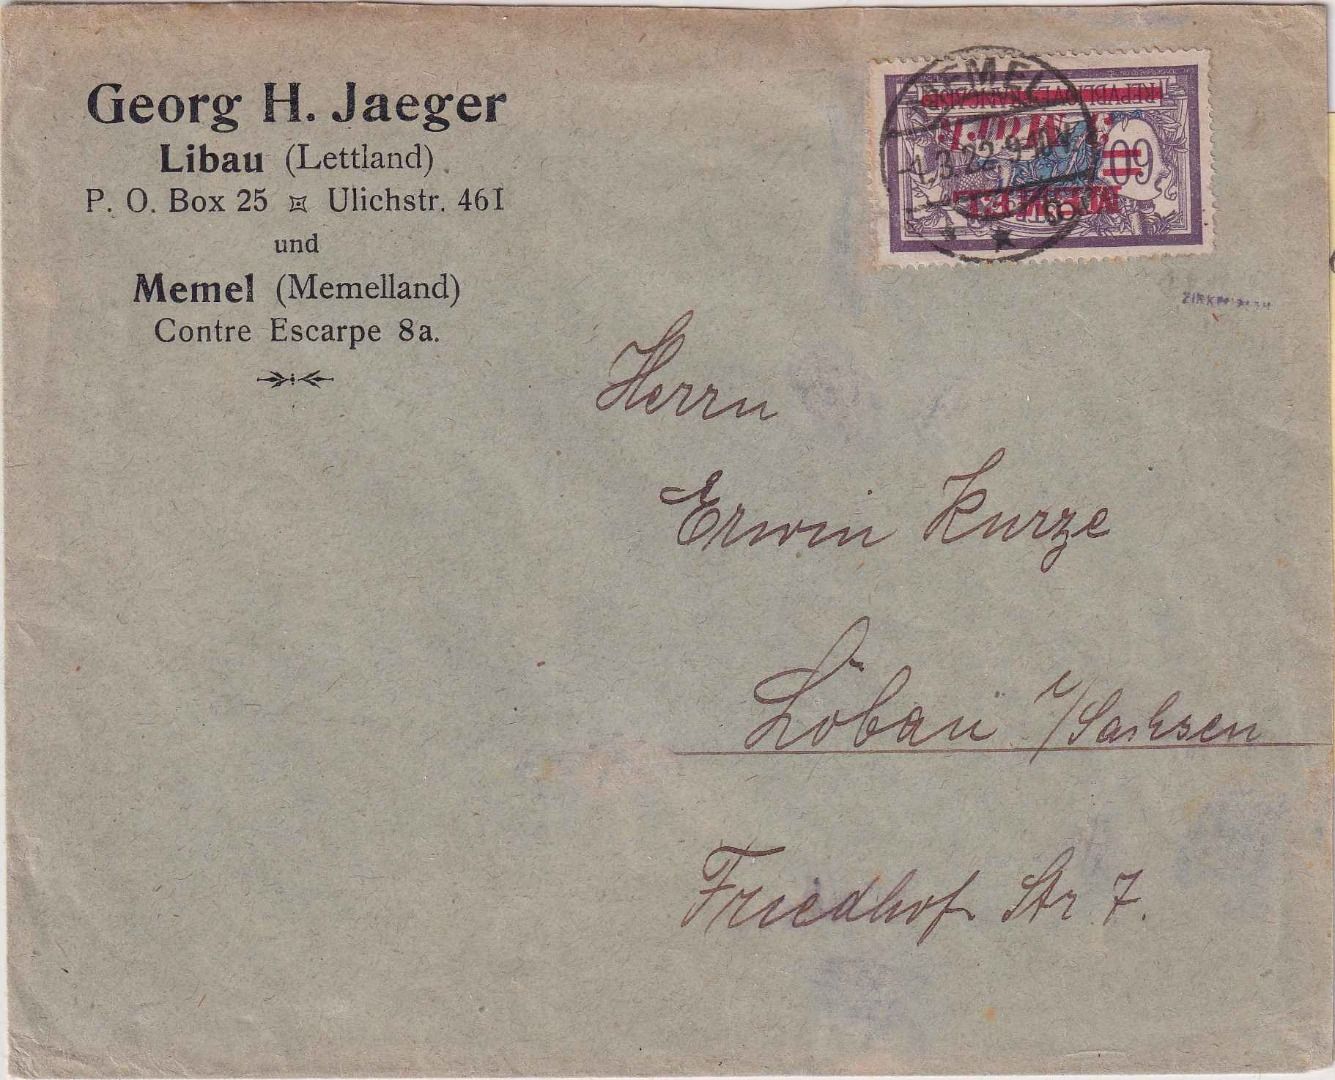 Georg H. Jaeger
Libau (Lettland)
P. O. Box 25 Ulichstr. 46I
und
Memel (Memelland)
Contre Escarpe 8a.
MEMEL
1.3.22 9-10V.
60
REPUBLIQUE FRANÇAISE
MEMEL
Herrn
Erwin Kurze
Löbau i/Sachsen
Friedhof Str 7.